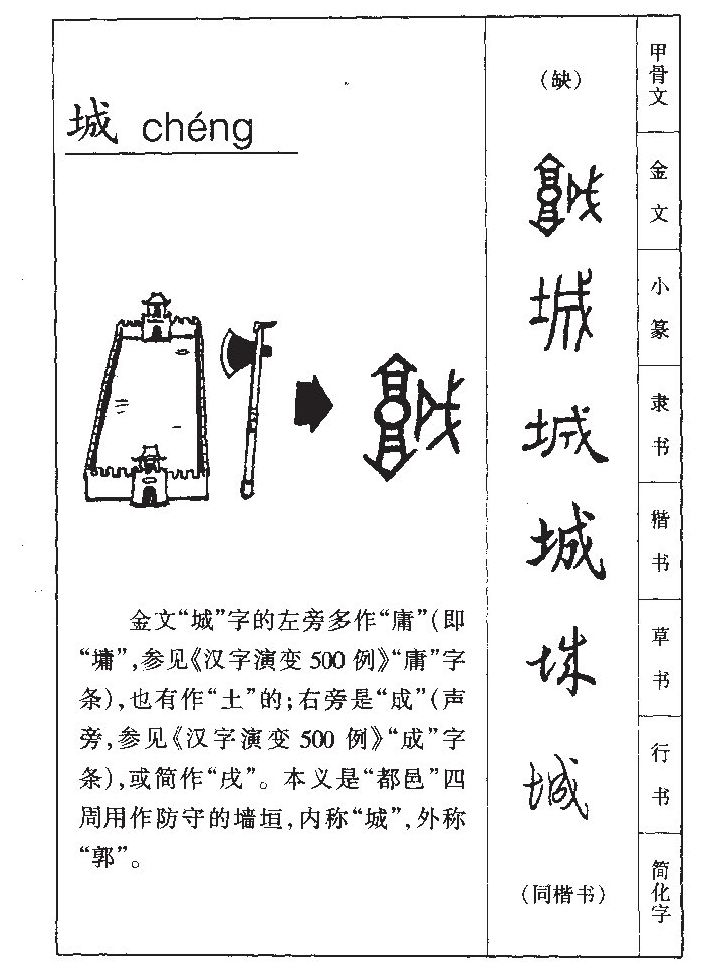 城 chéng
金文“城”字的左旁多作“庸”(即
“墉”,参见《汉字演变 500 例》“庸”字
条),也有作“土”的;右旁是“成”(声
旁,参见《汉字演变 500 例》“成”字
条),或简作“戌”。本义是“都邑”四
周用作防守的墙垣,内称“城”,外称
“郭”。
(缺)
甲骨文
金文
城
小篆
城
隶书
城
楷书
城
草书
城
行书
(同楷书)
简化字